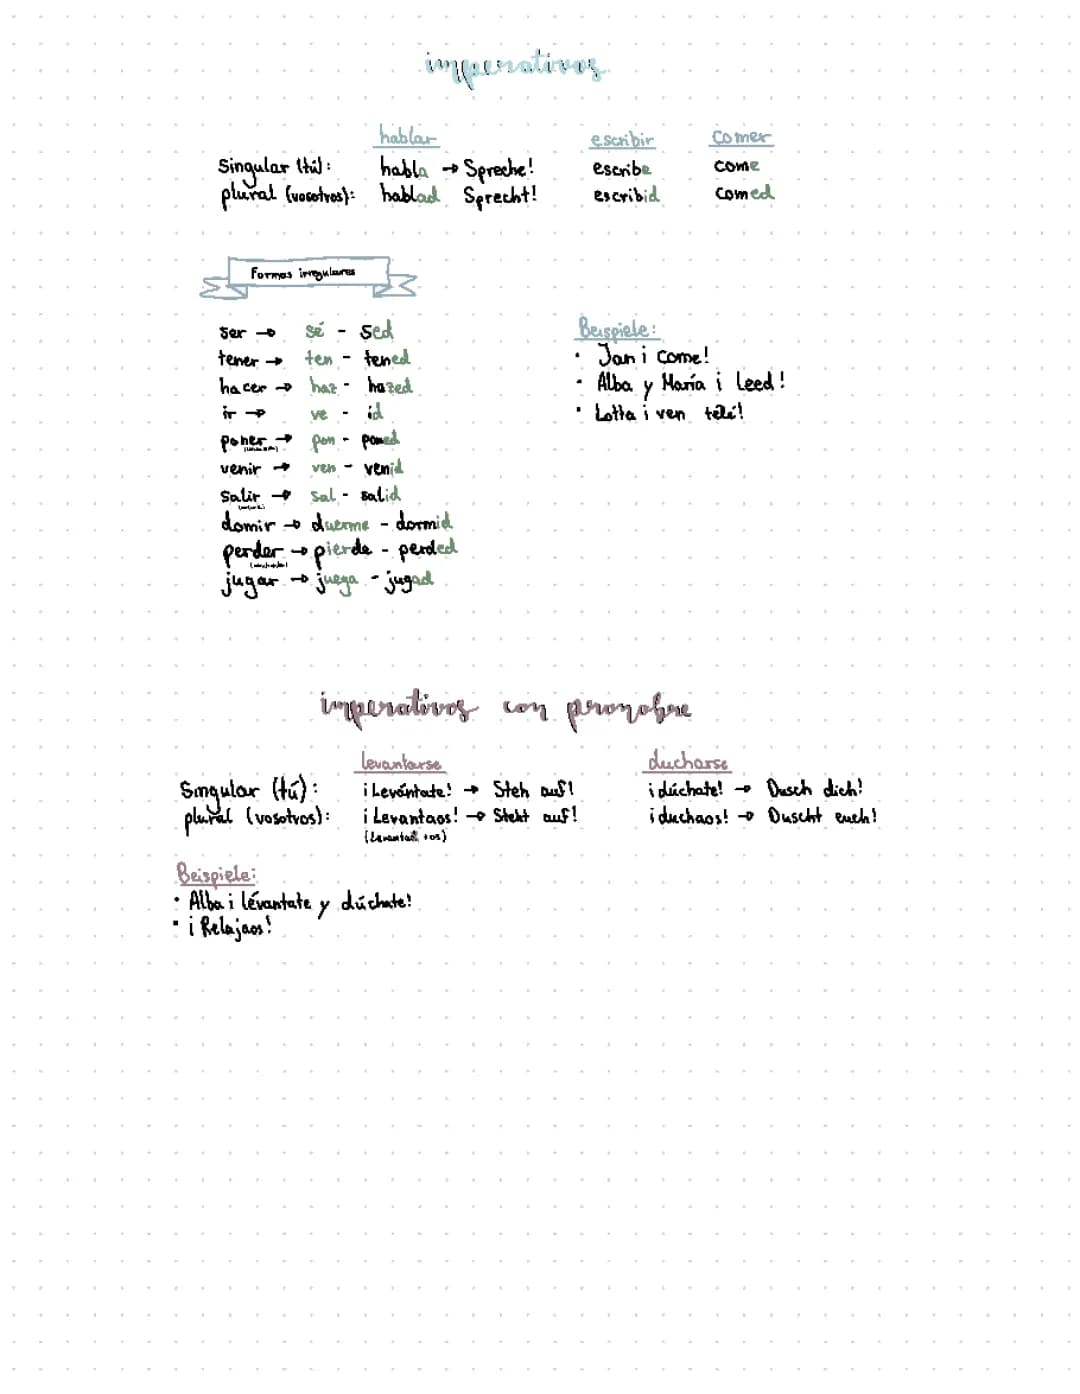 imperativos
hablar escribir comer
Singular (tú): habla → Spreche! escribe come
plural (vosotros): hablad Sprecht! escribid comed
Formas irregulares
ser → sé - sed
tener → ten - tened
hacer → haz - hazed
ir → ve - id
poner → pon - poned
venir → ven - venid
salir → sal - salid
domir → duerme - dormid
perder → pierde - perded
jugar → juega - jugad
Beispiele:
• Jan ¡ come!
• Alba y María ¡ Leed!
• Lotta ¡ ven
imperativos con pronobre
levantarse ducharse
Singular (tú): ¡Levántate! → Steh auf! ¡dúchate! → Dusch dich!
plural (vosotros): ¡Levantaos! → Steht auf! ¡duchaos! → Duscht euch!
(Levantad +os)
Beispiele:
• Alba ¡ lévantate y dúchate!
• ¡ Relajaos!